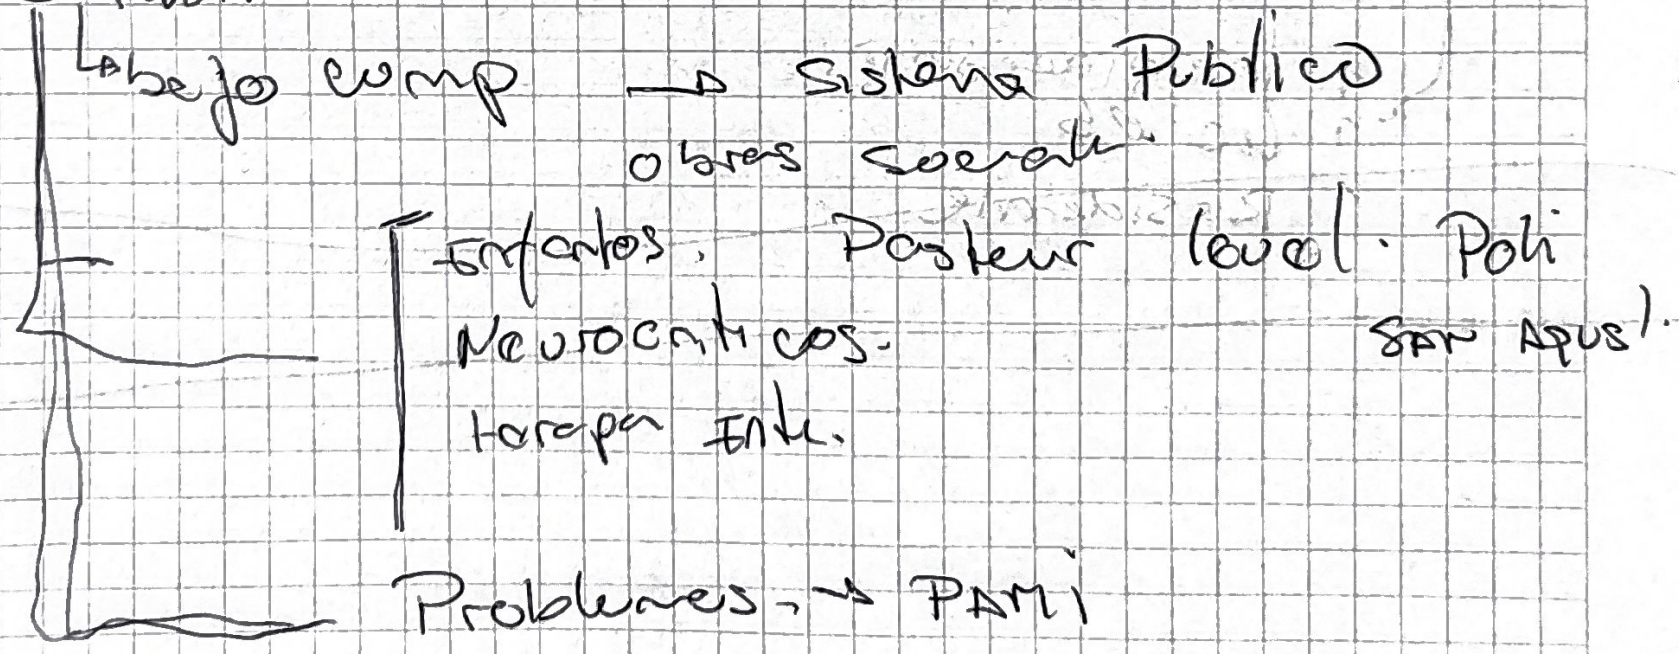 bajo comp → Sistema Publico
obras sociales.
Infartos. Pasteur local. Poli
Neurocriticos. SAN Agus).
terapia Inte.
Problemas. → PAMi